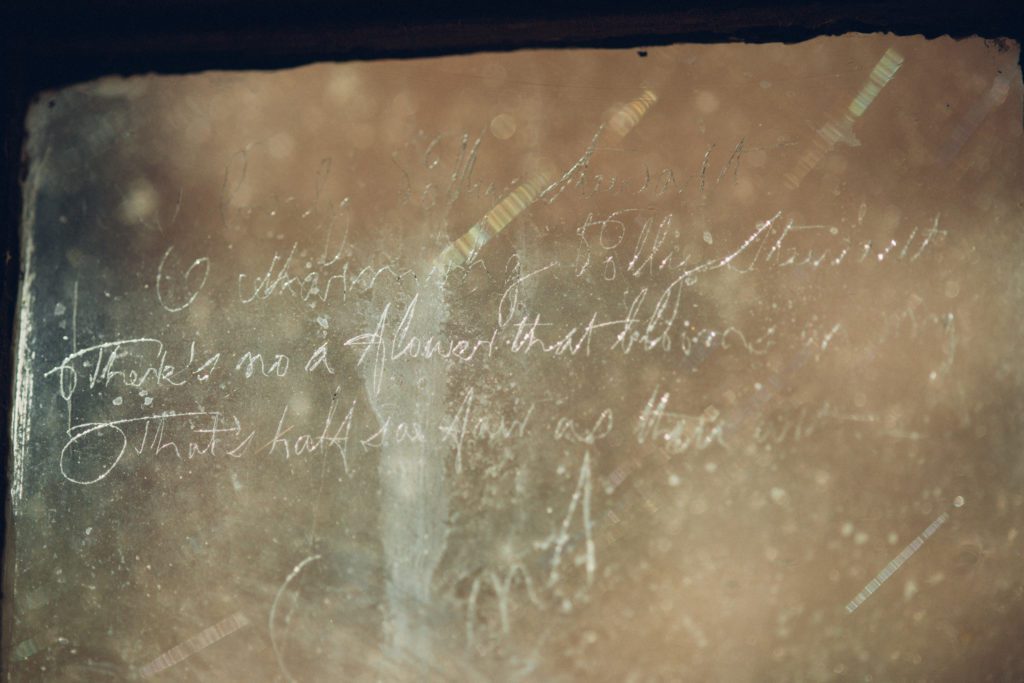 Lovely Polly Stewart
O charming Polly Stewart
There's no a flower that blooms in May
That's half sae fair as thou art